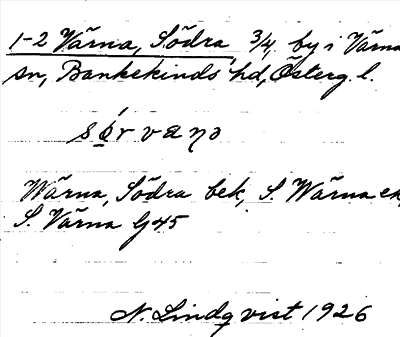 1-2 Värna, Södra, 3/4, by i Värna
sn, Bankekinds hd, Österg. l.
Wärna, Södra bek, S. Wärna ek,
S. Värna G45
N. Lindqvist 1926